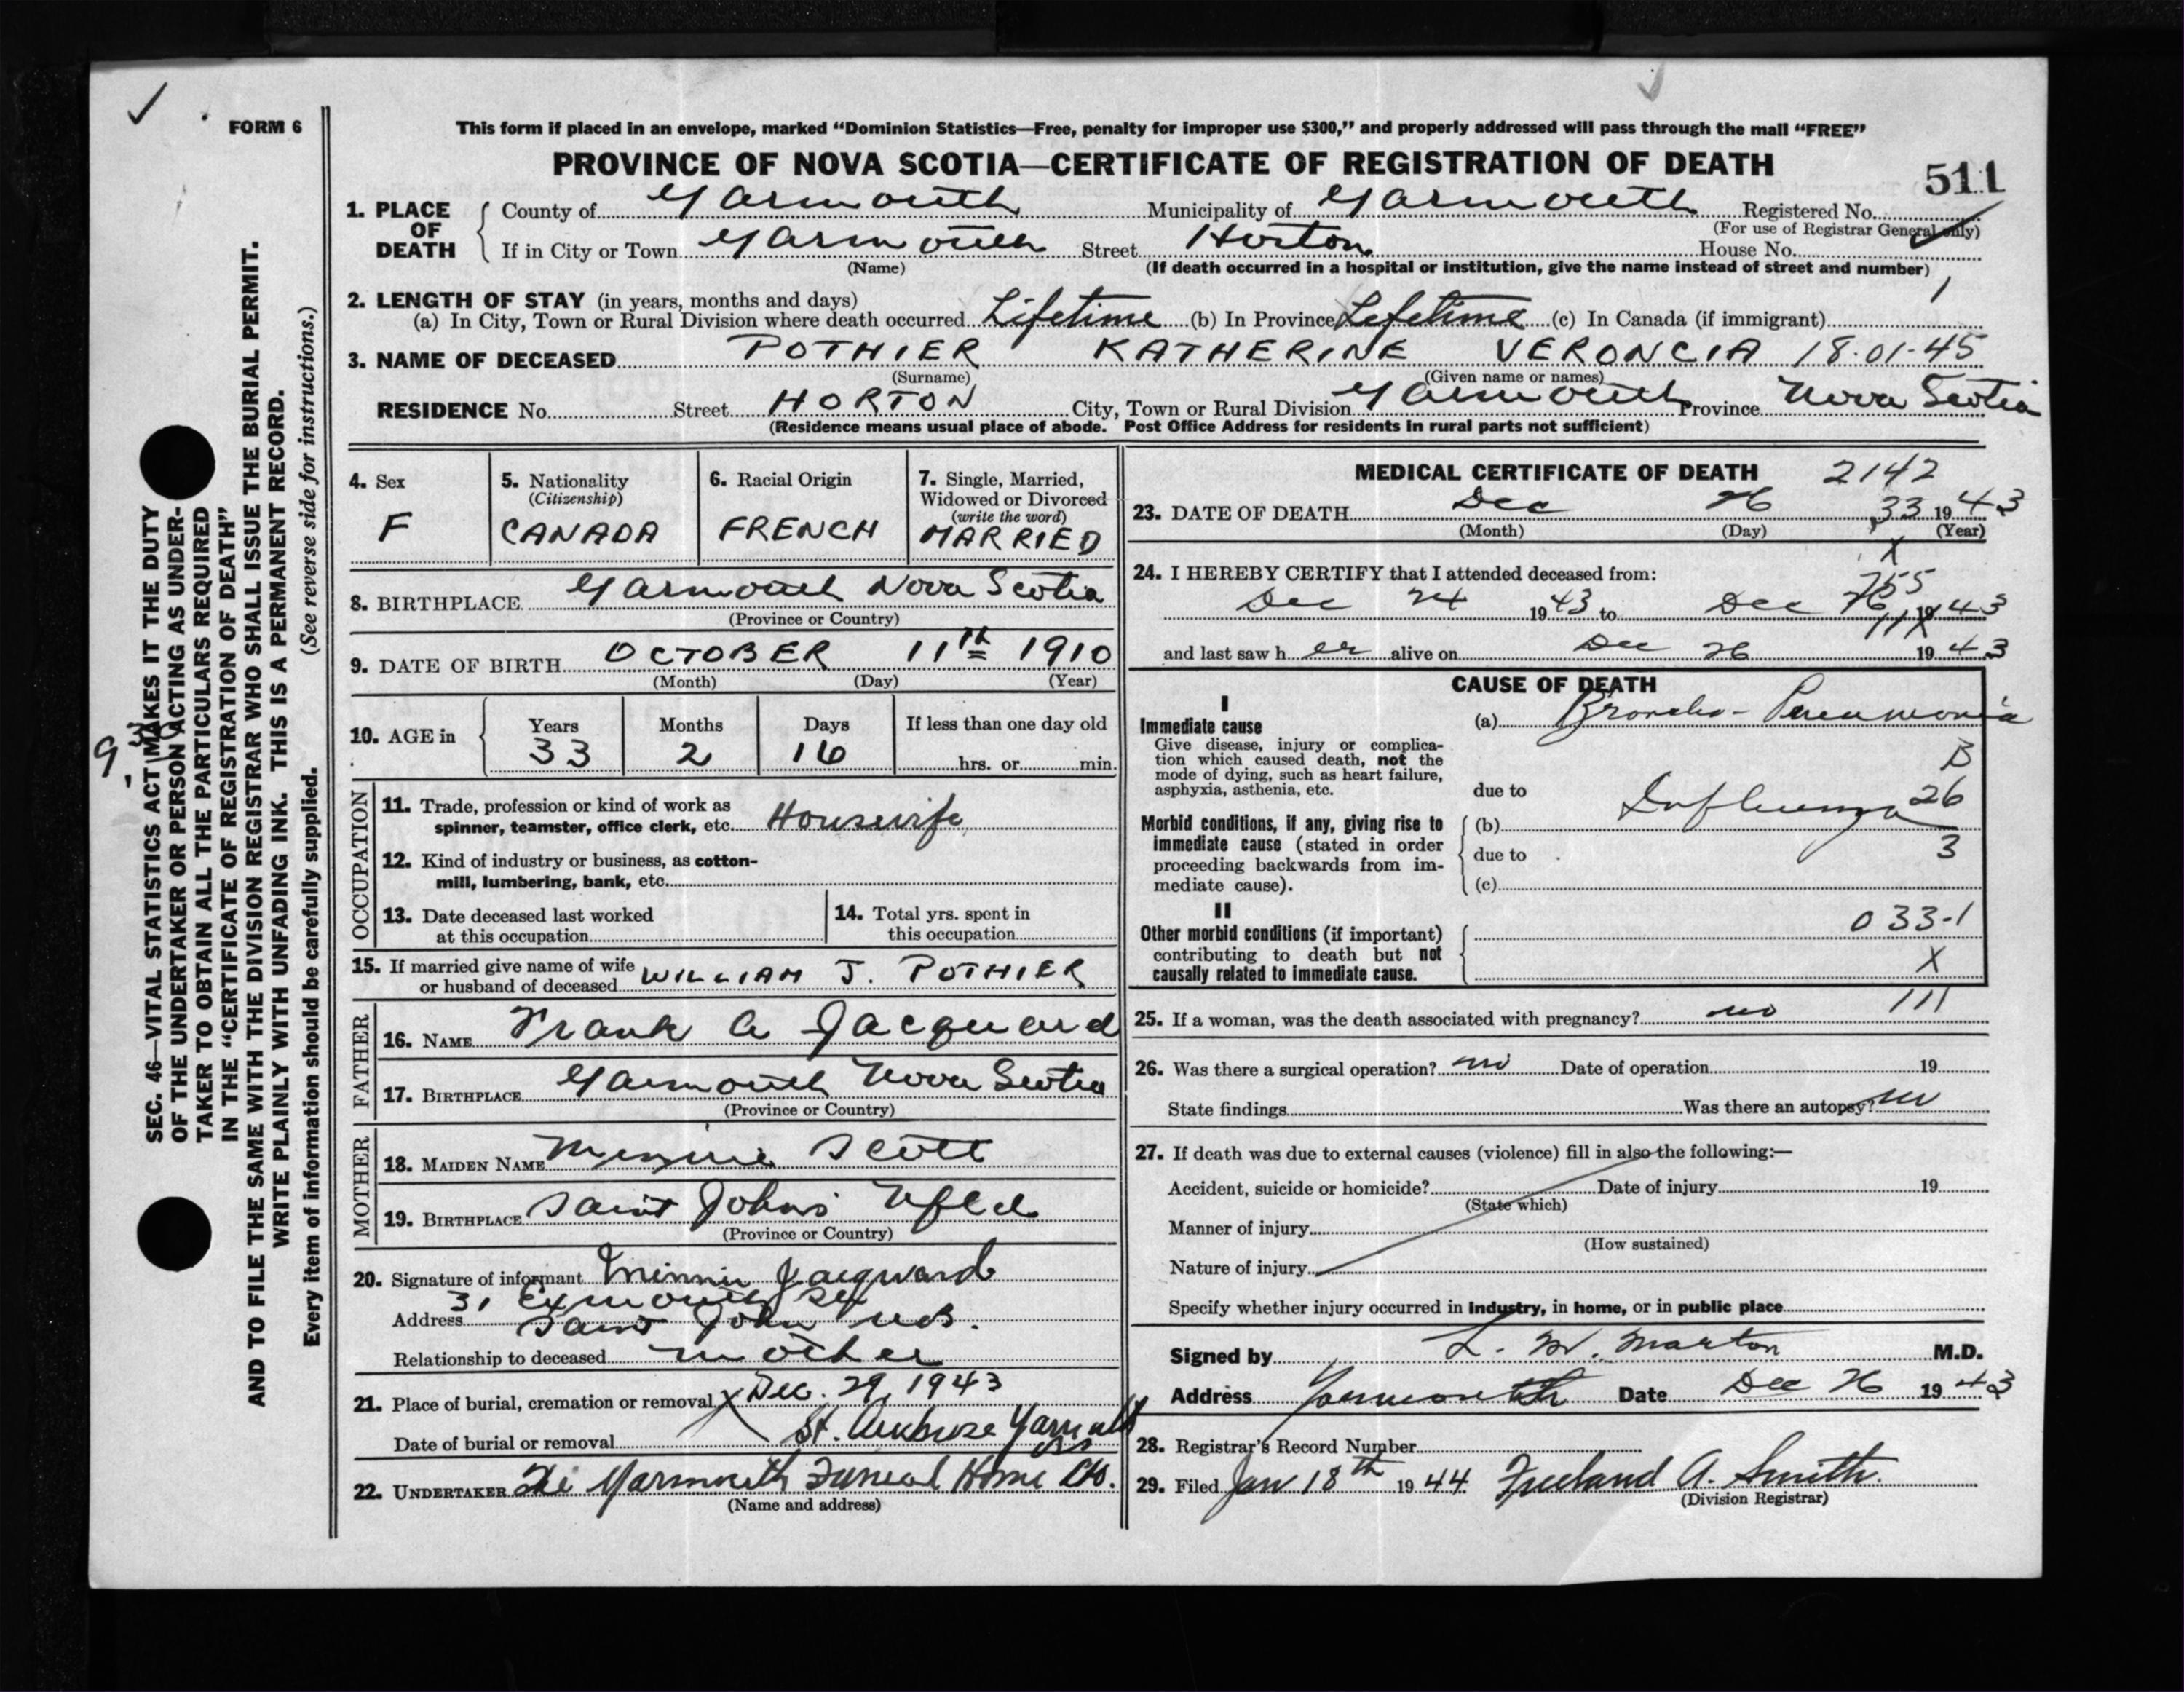 FORM 6
This form if placed in an envelope, marked “Dominion Statistics—Free, penalty for improper use $300,” and properly addressed will pass through the mail “FREE”
PROVINCE OF NOVA SCOTIA—CERTIFICATE OF REGISTRATION OF DEATH
511
1. PLACE OF DEATH
County of Yarmouth Municipality of Yarmouth Registered No.
(For use of Registrar General only)
If in City or Town Yarmouth Street Horton House No.
(Name) (If death occurred in a hospital or institution, give the name instead of street and number)
2. LENGTH OF STAY (in years, months and days)
1
(a) In City, Town or Rural Division where death occurred Lifetime (b) In Province Lifetime (c) In Canada (if immigrant)
3. NAME OF DECEASED POTHIER KATHERINE VERONCIA 18-01-45
(Surname) (Given name or names)
RESIDENCE No. Street HORTON City, Town or Rural Division Yarmouth Province Nova Scotia
(Residence means usual place of abode. Post Office Address for residents in rural parts not sufficient)
4. Sex
F
5. Nationality
(Citizenship)
CANADA
6. Racial Origin
FRENCH
7. Single, Married,
Widowed or Divorced
(write the word)
MARRIED
8. BIRTHPLACE Yarmouth Nova Scotia
(Province or Country)
9. DATE OF BIRTH OCTOBER 11th 1910
(Month) (Day) (Year)
10. AGE in
Years Months Days If less than one day old
33 2 16 hrs. or min.
OCCUPATION
11. Trade, profession or kind of work as
spinner, teamster, office clerk, etc. Housewife
12. Kind of industry or business, as cotton-
mill, lumbering, bank, etc.
13. Date deceased last worked
at this occupation
14. Total yrs. spent in
this occupation
15. If married give name of wife
or husband of deceased WILLIAM J. POTHIER
FATHER
16. NAME Frank A Jacquard
17. BIRTHPLACE Yarmouth Nova Scotia
(Province or Country)
MOTHER
18. MAIDEN NAME Minnie Scott
19. BIRTHPLACE Saint Johns Nfld
(Province or Country)
20. Signature of informant Minnie Jacquard
31 Exmouth St
Address Saint John N.B.
Relationship to deceased mother
21. Place of burial, cremation or removal Dec. 29, 1943
Date of burial or removal St. Ambrose Yarmouth
22. UNDERTAKER The Yarmouth Funeral Home Ltd.
(Name and address)
MEDICAL CERTIFICATE OF DEATH 2142
23. DATE OF DEATH Dec 26 33 1943
(Month) (Day) (Year)
X
24. I HEREBY CERTIFY that I attended deceased from:
755
Dec 24 1943 to Dec 26 1943
11X
and last saw her alive on Dec 26 1943
CAUSE OF DEATH
I
Immediate cause
(a) Broncho-Pneumonia
Give disease, injury or complica-
tion which caused death, not the
mode of dying, such as heart failure,
asphyxia, asthenia, etc.
B
due to
26
Morbid conditions, if any, giving rise to
immediate cause (stated in order
proceeding backwards from im-
mediate cause).
(b) Influenza
due to
3
(c)
II
Other morbid conditions (if important)
contributing to death but not
causally related to immediate cause.
033-1
X
25. If a woman, was the death associated with pregnancy? no 111
26. Was there a surgical operation? no Date of operation 19
State findings Was there an autopsy? no
27. If death was due to external causes (violence) fill in also the following:—
Accident, suicide or homicide? Date of injury 19
(State which)
Manner of injury
(How sustained)
Nature of injury
Specify whether injury occurred in industry, in home, or in public place
Signed by L. M. Morton M.D.
Address Yarmouth Date Dec 26 1943
28. Registrar's Record Number
29. Filed Jan 18th 1944 Freeland A. Smith
(Division Registrar)
SEC. 46—VITAL STATISTICS ACT MAKES IT THE DUTY
OF THE UNDERTAKER OR PERSON ACTING AS UNDER-
TAKER TO OBTAIN ALL THE PARTICULARS REQUIRED
IN THE “CERTIFICATE OF REGISTRATION OF DEATH”
AND TO FILE THE SAME WITH THE DIVISION REGISTRAR WHO SHALL ISSUE THE BURIAL PERMIT.
WRITE PLAINLY WITH UNFADING INK. THIS IS A PERMANENT RECORD.
Every item of information should be carefully supplied. (See reverse side for instructions.)